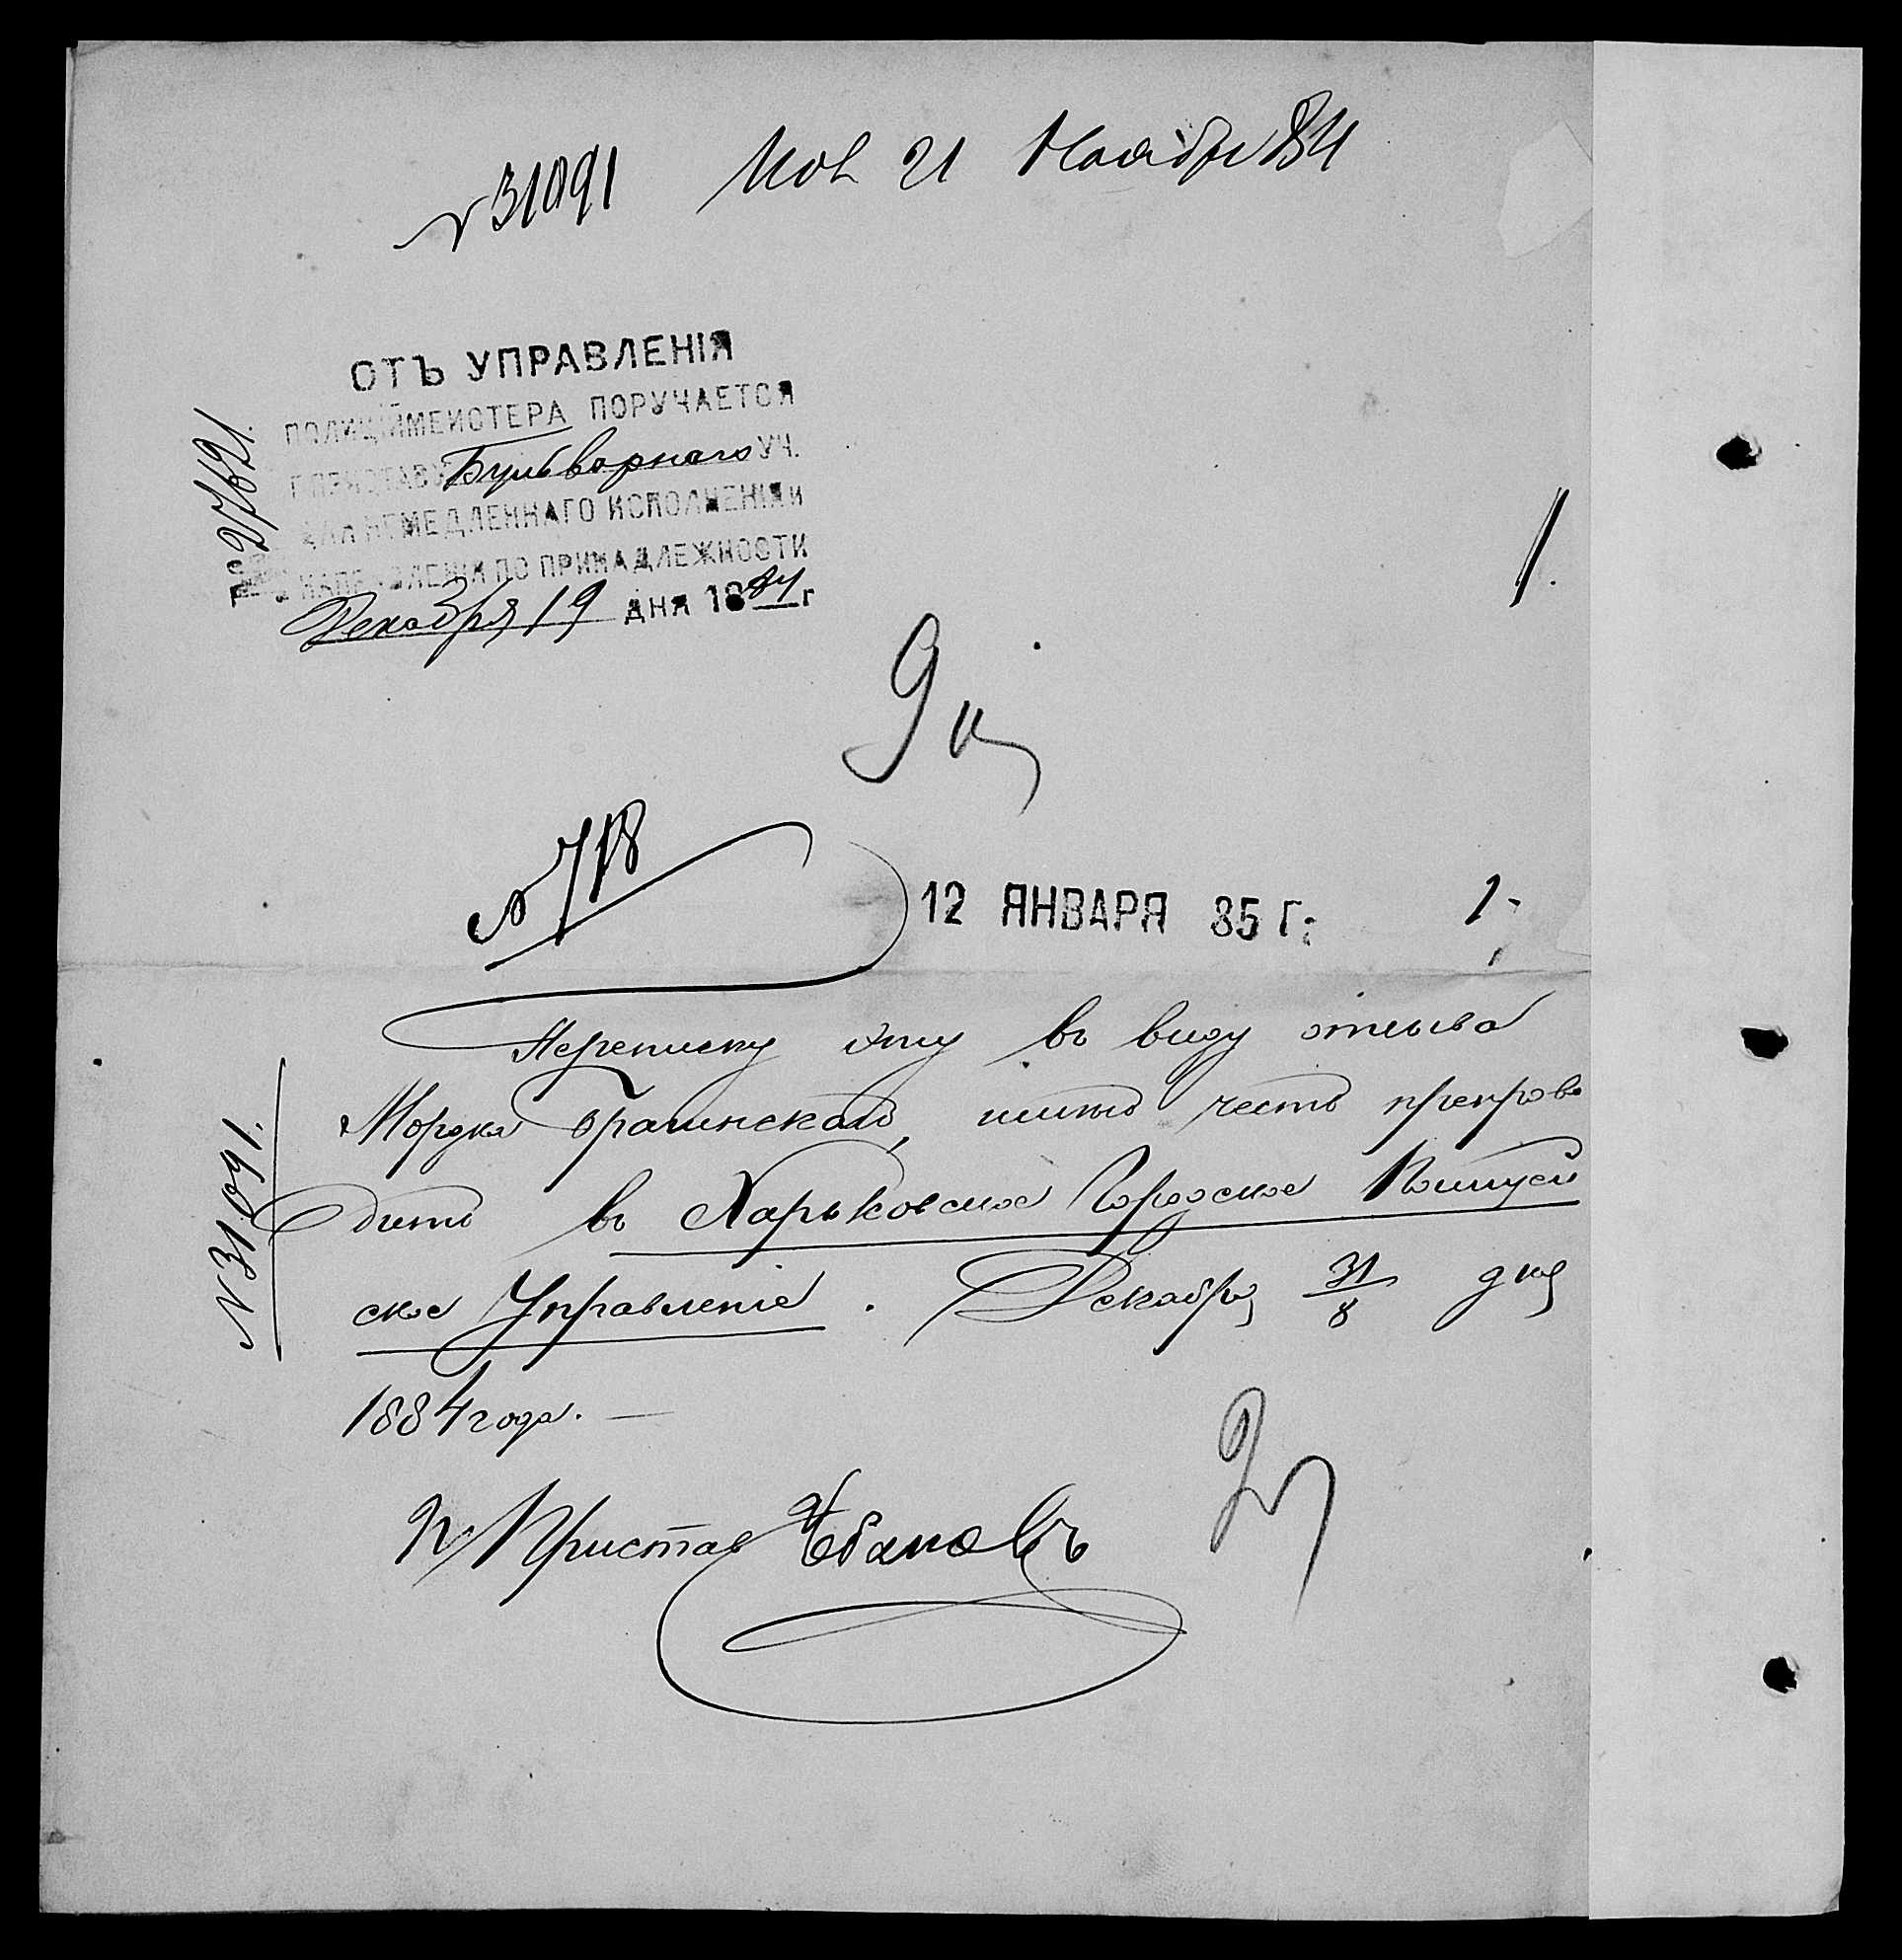 № 31091 21 Ноября 84
ОТЪ УПРАВЛЕНІЯ
ПОЛИЦІЙМЕЙСТЕРА ПОРУЧАЕТСЯ
Г. ПРИСТАВУ Бульварнаго УЧ.
ДЛЯ НЕМЕДЛЕННАГО ИСПОЛНЕНІЯ И
НАПРАВЛЕНІЯ ПО ПРИНАДЛЕЖНОСТИ
Декабря 19 ДНЯ 1884 г
27621
1.
№ 718
12 ЯНВАРЯ 85 Г.
Переписку эту въ виду
Мордка имѣю честь препрово
дить въ Харьковское Городское Полицей
ское Управленіе. Декабря 31/8 дня
1884 года. —
№ 31091.
П/Приставъ